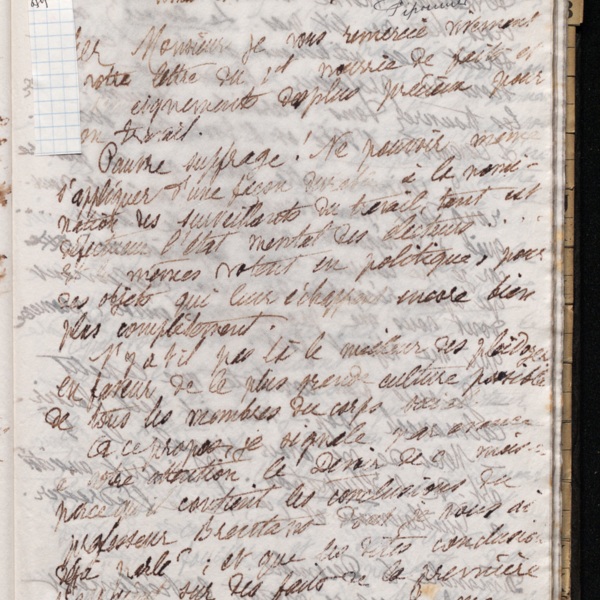 Monsieur je vous remercie vivement
votre lettre du 1er nourrie de faits et
eignements des plus précieux pour
on travail.
Pauvre suffrage! Ne pouvoir même
s'appliquer d'une façon durable à la nomi-
nation des surveillants du travail tant est
défectueux l'état mental des électeurs...
Et les mêmes votent en politique, pour
des objets qui leur échappent encore bien
plus complètement.
N'y a-t-il pas là le meilleur des plaidoyers
en faveur de la plus grande culture possible
de tous les membres du corps social
A ce propos, je signale par avance
à votre attention le Devoir de
parce qu'il contient les conclusions du
professeur Brentano dont je vous ai
déjà parlé; et que les dites conclusions
sur des faits de la première